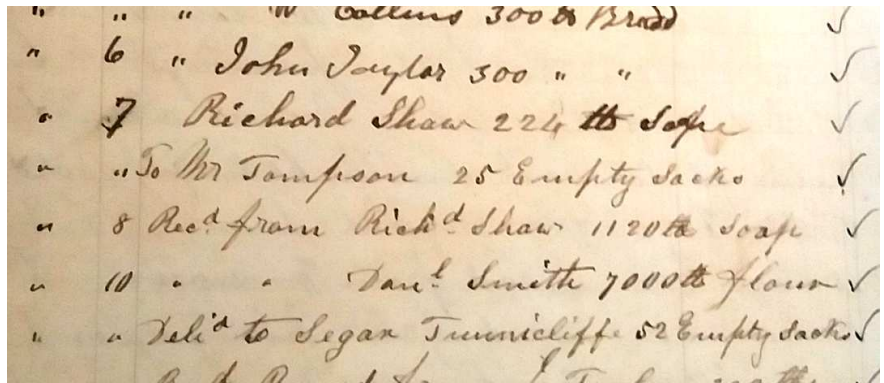 " " " W Collins 300 lb Bread ✓
" 6 " John Taylor 300 " " ✓
" 7 Richard Shaw 224 lb Sope ✓
" " To Mr Tompson 25 Empty Sacks ✓
" 8 Recd from Richd Shaw 1120 lb Soap ✓
" 10 " " Danl Smith 7000 lb flour ✓
" " Delid to Segar Tunnicliffe 52 Empty Sacks ✓